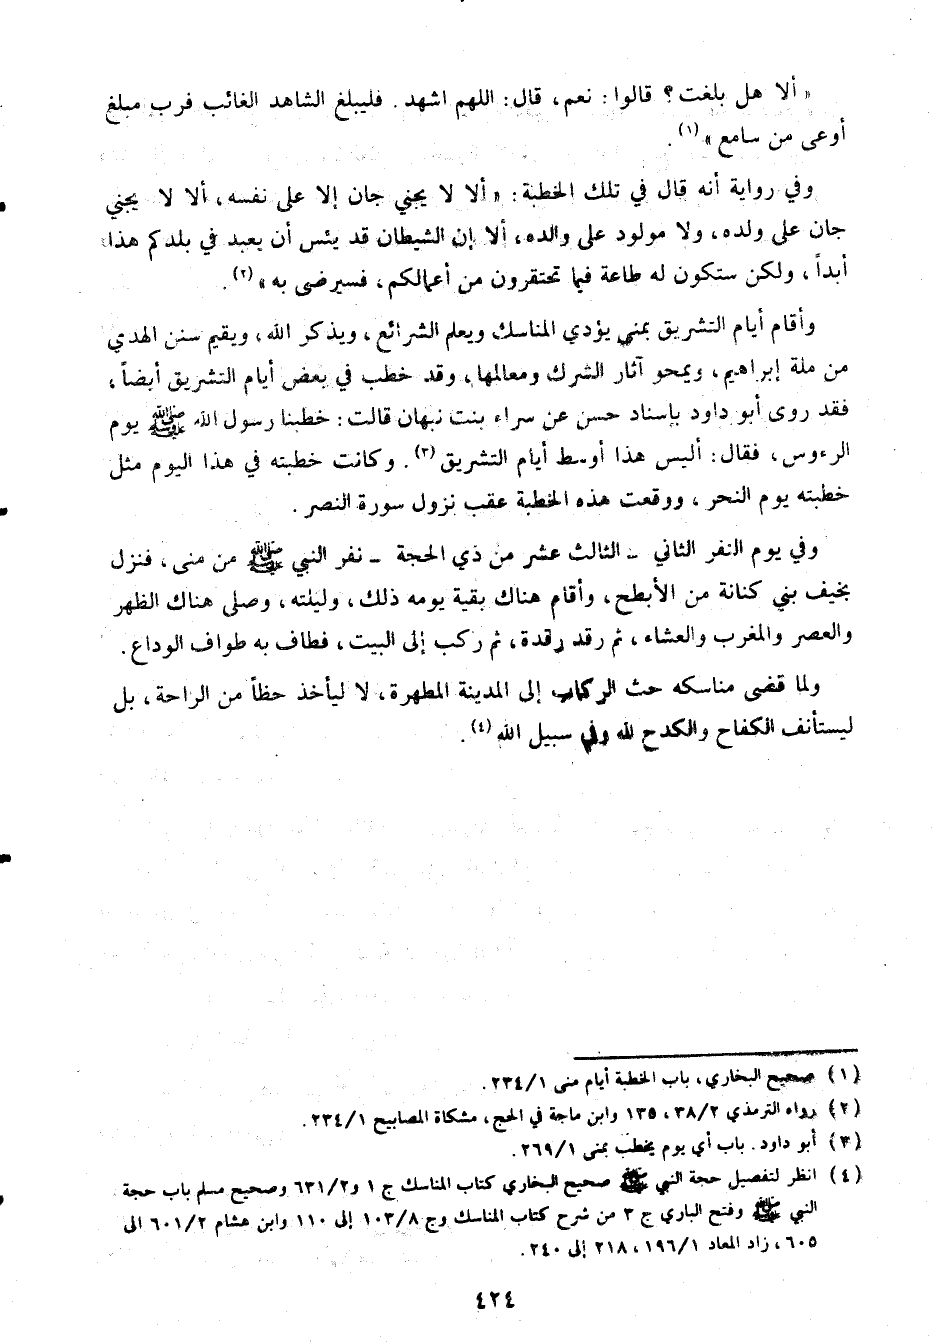 « ألا هل بلغت؟ قالوا: نعم، قال: اللهم اشهد. فليبلغ الشاهد الغائب فرب مبلغ
أوعى من سامع » (١).
وفي رواية أنه قال في تلك الخطبة: « ألا لا يجني جان إلا على نفسه، ألا لا يجني
جان على ولده، ولا مولود على والده، ألا إن الشيطان قد يئس أن يعبد في بلدكم هذا
أبداً، ولكن ستكون له طاعة فيما تحتقرون من أعمالكم، فسيرضى به » (٢).
وأقام أيام التشريق بمنى يؤدي المناسك ويعلم الشرائع، ويذكر الله، ويقيم سنن الهدي
من ملة إبراهيم، ويمحو آثار الشرك ومعالمها، وقد خطب في بعض أيام التشريق أيضاً،
فقد روى أبو داود بإسناد حسن عن سراء بنت نبهان قالت: خطبنا رسول الله ﷺ يوم
الرءوس، فقال: أليس هذا أوسط أيام التشريق (٣). وكانت خطبته في هذا اليوم مثل
خطبته يوم النحر، ووقعت هذه الخطبة عقب نزول سورة النصر.
وفي يوم النفر الثاني - الثالث عشر من ذي الحجة - نفر النبي ﷺ من منى، فنزل
بخيف بني كنانة من الأبطح، وأقام هناك بقية يومه ذلك، وليلته، وصلى هناك الظهر
والعصر والمغرب والعشاء، ثم رقد رقدة، ثم ركب إلى البيت، فطاف به طواف الوداع.
ولما قضى مناسكه حث الركاب إلى المدينة المطهرة، لا ليأخذ حظاً من الراحة، بل
ليستأنف الكفاح والكدح لله وفي سبيل الله (٤).
(١) صحيح البخاري، باب الخطبة أيام منى ٢٣٤/١.
(٢) رواه الترمذي ٣٨/٢، ١٣٥ وابن ماجة في الحج، مشكاة المصابيح ٢٣٤/١.
(٣) أبو داود. باب أي يوم يخطب بمنى ٢٦٩/١.
(٤) انظر لتفصيل حجة النبي ﷺ صحيح البخاري كتاب المناسك ج ١ و٦٣١/٢ وصحيح مسلم باب حجة
النبي ﷺ وفتح الباري ج ٣ من شرح كتاب المناسك وج ١٠٣/٨ إلى ١١٠ وابن هشام ٦٠١/٢ الى
٦٠٥، زاد المعاد ١٩٦/١، ٢١٨ إلى ٢٤٠.
٤٢٤